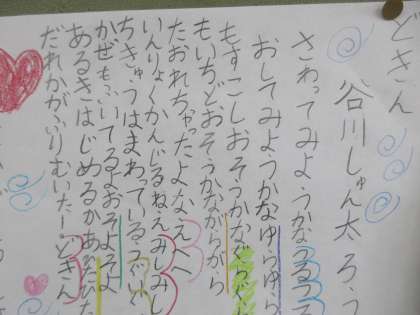 どきん
谷川しゅん太ろう
さわってみようかなつるつる
おしてみようかなゆらゆら
もすこしおそうかなぐらぐら
もいちどおそうかながらがら
たおれちゃったよなえへへ
いんりょくかんじるねえみしみし
ちきゅうはまわっているぐいぐい
かぜもふいてるよおそよそよ
あるきはじめるかあひたひた
だれかがふりむいた!どきん